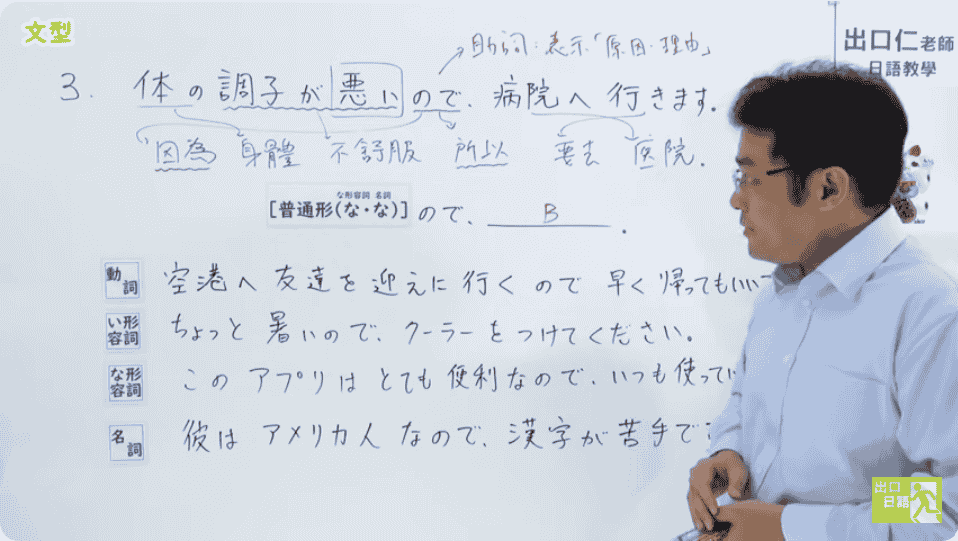 文型
助詞:表示「原因・理由」
出口仁老師
日語教學
3. 体の調子が悪いので、病院へ行きます。
因為 身體 不舒服 所以 要去 医院.
な形容詞 名詞
[普通形(な・な)]ので、 B .
動詞 空港へ友達を迎えに行くので早く帰ってもいい
い形容詞 ちょっと暑いので、クーラーをつけてください。
な形容詞 このアプリはとても便利なので、いつも使って
名詞 彼はアメリカ人なので、漢字が苦手で
出口
日語